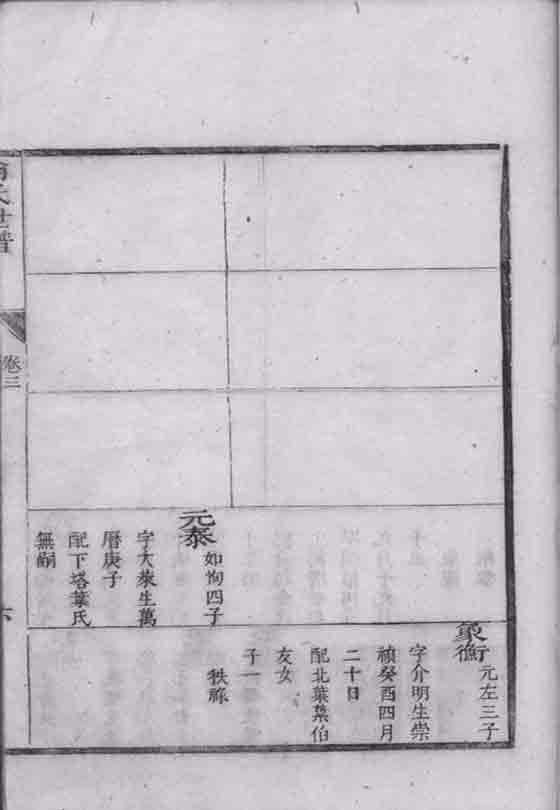 元泰
如恂四子
字大來生萬
曆庚子
配下塔葉氏
無嗣
象衡
元左三子
字介明生崇
禎癸酉四月
二十日
配北葉葉伯
友女
子一
秩
氏世譜
卷三
六